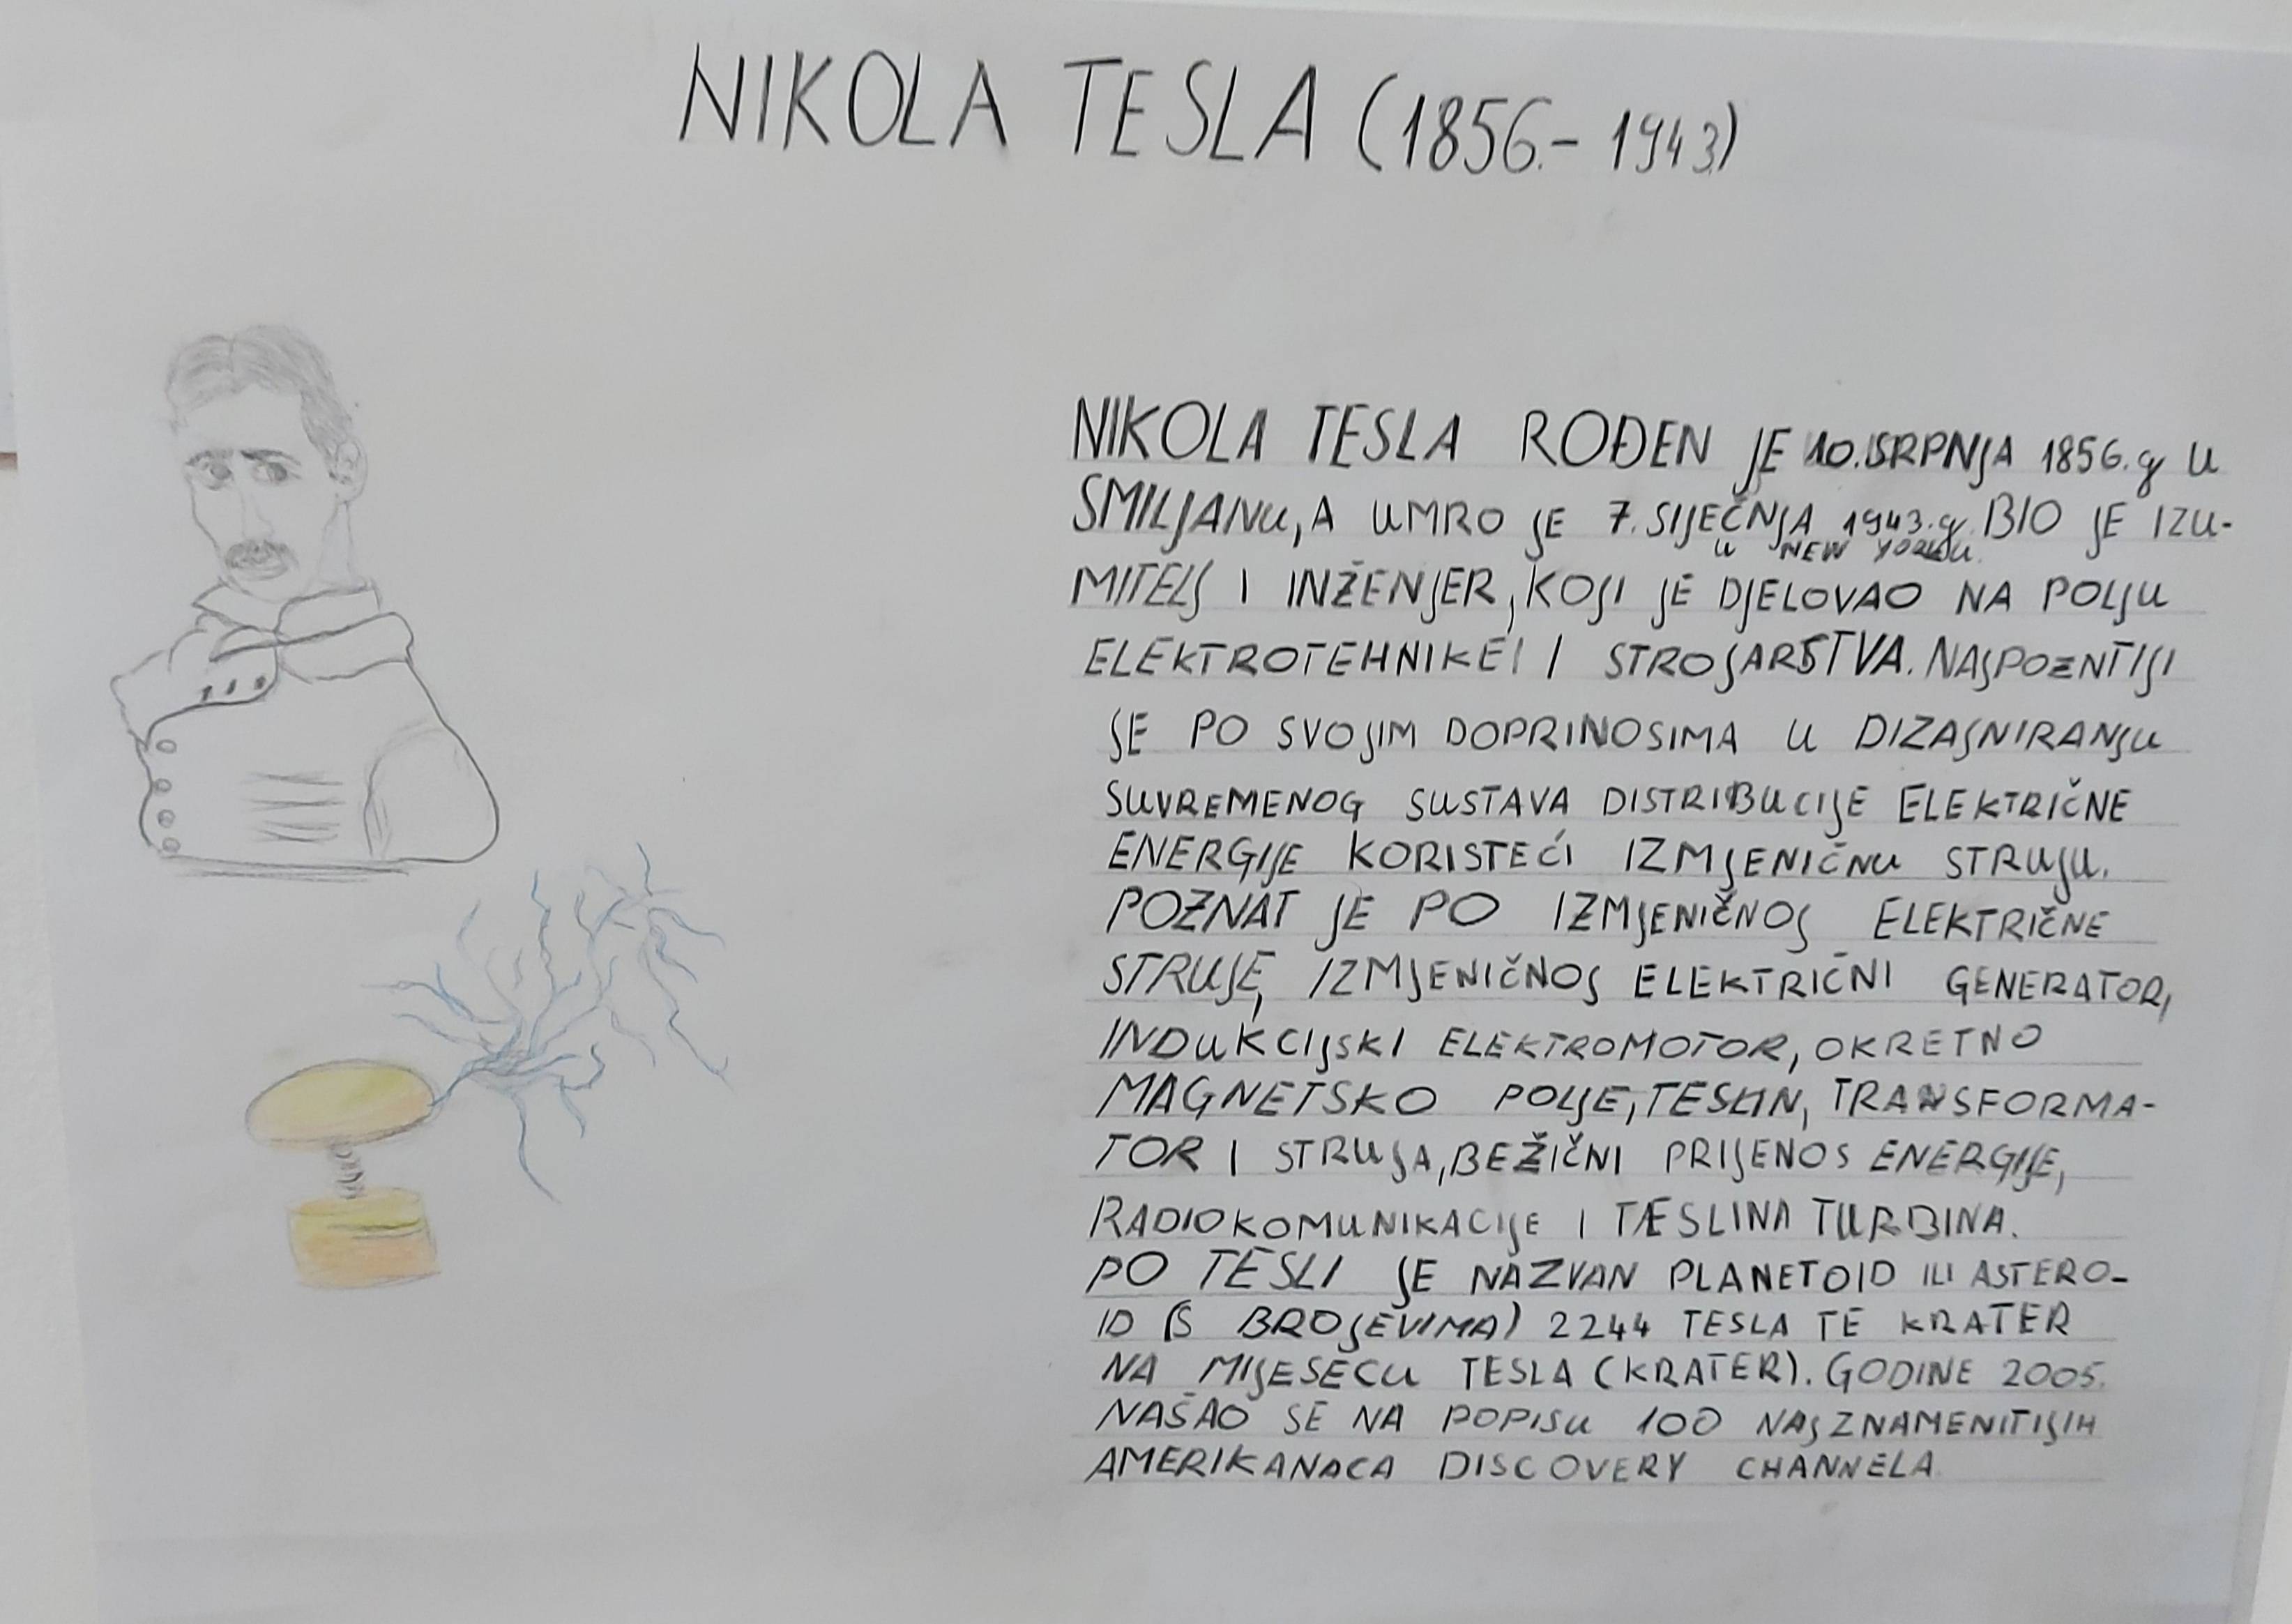 NIKOLA TESLA (1856.- 1943.)
NIKOLA TESLA ROĐEN JE 10. SRPNJA 1856. g U
SMILJANU, A UMRO JE 7. SIJEČNJA 1943. g. BIO JE IZU-
U NEW YORKU.
MITELJ I INŽENJER, KOJI JE DJELOVAO NA POLJU
ELEKTROTEHNIKE I STROJARSTVA. NAJPOZNTIJI
JE PO SVOJIM DOPRINOSIMA U DIZAJNIRANJU
SUVREMENOG SUSTAVA DISTRIBUCIJE ELEKTRIČNE
ENERGIJE KORISTEĆI IZMJENIČNU STRUJU.
POZNAT JE PO IZMJENIČNOJ ELEKTRIČNE
STRUJE, IZMJENIČNOJ ELEKTRIČNI GENERATOR,
INDUKCIJSKI ELEKTROMOTOR, OKRETNO
MAGNETSKO POLJE, TESLIN, TRANSFORMA-
TOR I STRUJA, BEŽIČNI PRIJENOS ENERGIJE,
RADIOKOMUNIKACIJE I TESLINA TURBINA.
PO TESLI JE NAZVAN PLANETOID ILI ASTERO-
ID (S BROJEVIMA) 2244 TESLA TE KRATER
NA MIJESECU TESLA (KRATER). GODINE 2005.
NAŠAO SE NA POPISU 100 NAJZNAMENITIJIH
AMERIKANACA DISCOVERY CHANNELA